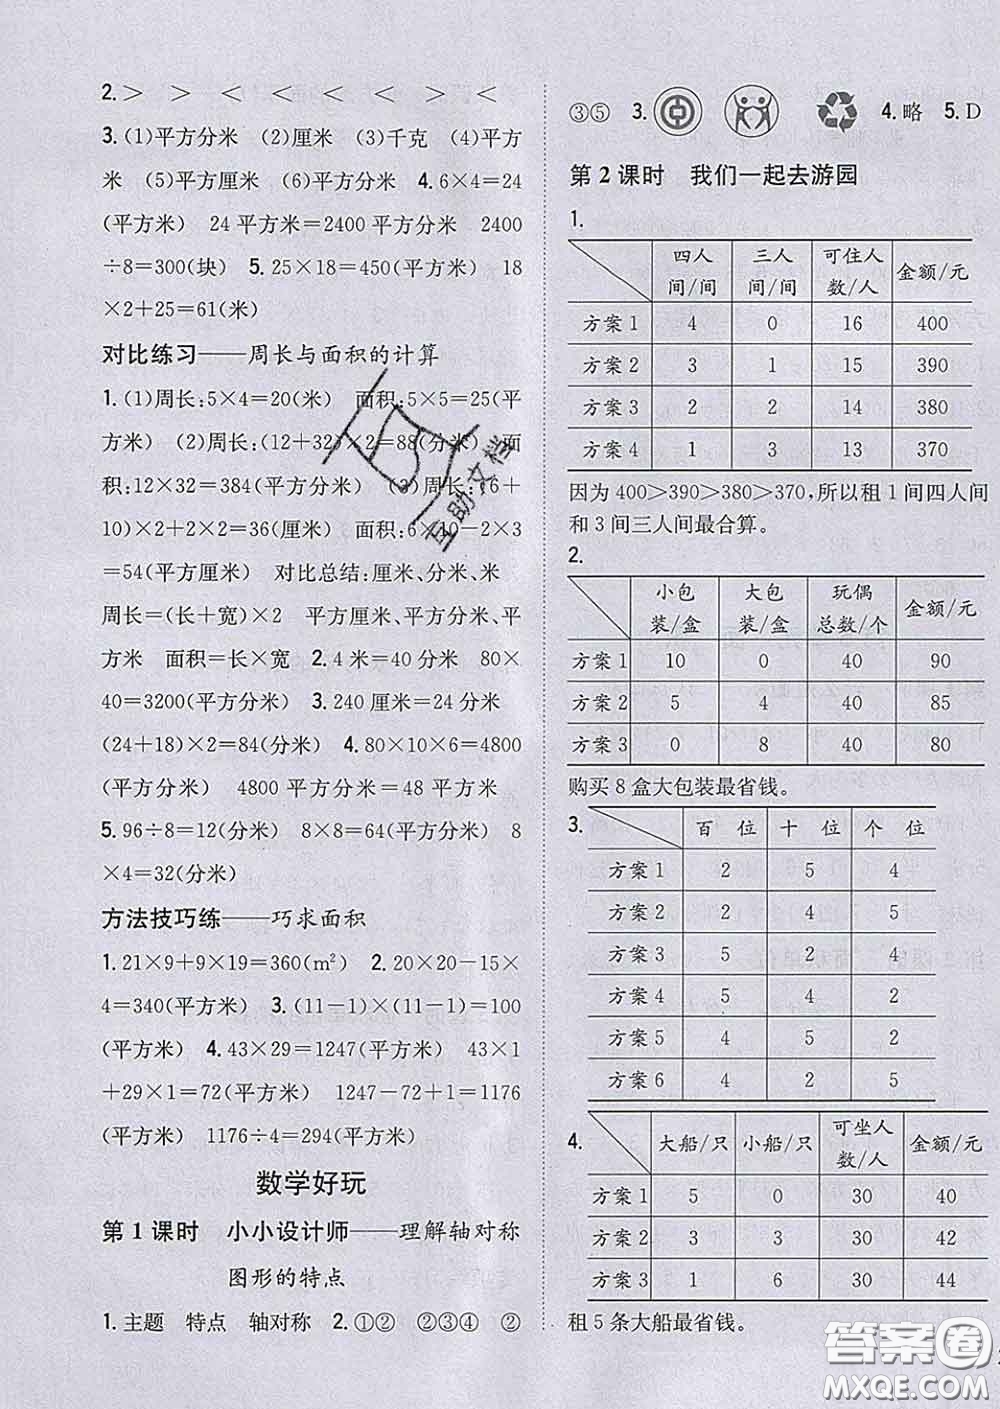 2. > > < < < < > <
3. (1)平方分米 (2)厘米 (3)千克 (4)平方
米 (5)平方厘米 (6)平方分米 4. 6×4=24
(平方米) 24 平方米=2400 平方分米 2400
÷8=300(块) 5. 25×18=450(平方米) 18
×2+25=61(米)
对比练习——周长与面积的计算
1. (1)周长:5×4=20(米) 面积:5×5=25(平
方米) (2)周长:(12+32)×2=88(分米) 面
积:12×32=384(平方分米) (3)周长:(6+
10)×2+2×2=36(厘米) 面积:6×10-2×3
=54(平方厘米) 对比总结:厘米、分米、米
周长=(长+宽)×2 平方厘米、平方分米、平
方米 面积=长×宽 2. 4 米=40 分米 80×
40=3200(平方分米) 3. 240 厘米=24 分米
(24+18)×2=84(分米) 4. 80×10×6=4800
(平方分米) 4800 平方分米=48 平方米
5. 96÷8=12(分米) 8×8=64(平方分米) 8
×4=32(分米)
方法技巧练——巧求面积
1. 21×9+9×19=360(m²) 2. 20×20-15×
4=340(平方米) 3. (11-1)×(11-1)=100
(平方米) 4. 43×29=1247(平方米) 43×1
+29×1=72(平方米) 1247-72+1=1176
(平方米) 1176÷4=294(平方米)
数学好玩
第 1 课时 小小设计师——理解轴对称
图形的特点
1. 主题 特点 轴对称 2. ①② ②③④ ②
③⑤ 3. 4. 略 5. D
第 2 课时 我们一起去游园
1.
四人间/间 三人间/间 可住人数/人 金额/元
方案 1 4 0 16 400
方案 2 3 1 15 390
方案 3 2 2 14 380
方案 4 1 3 13 370
因为 400>390>380>370,所以租 1 间四人间
和 3 间三人间最合算。
2.
小包装/盒 大包装/盒 玩偶总数/个 金额/元
方案 1 10 0 40 90
方案 2 5 4 40 85
方案 3 0 8 40 80
购买 8 盒大包装最省钱。
3.
百 位 十 位 个 位
方案 1 2 5 4
方案 2 2 4 5
方案 3 5 2 4
方案 4 5 4 2
方案 5 4 5 2
方案 6 4 2 5
4.
大船/只 小船/只 可坐人数/人 金额/元
方案 1 5 0 30 40
方案 2 3 3 30 42
方案 3 1 6 30 44
租 5 条大船最省钱。
互助文档
答案圈
MXQE.COM